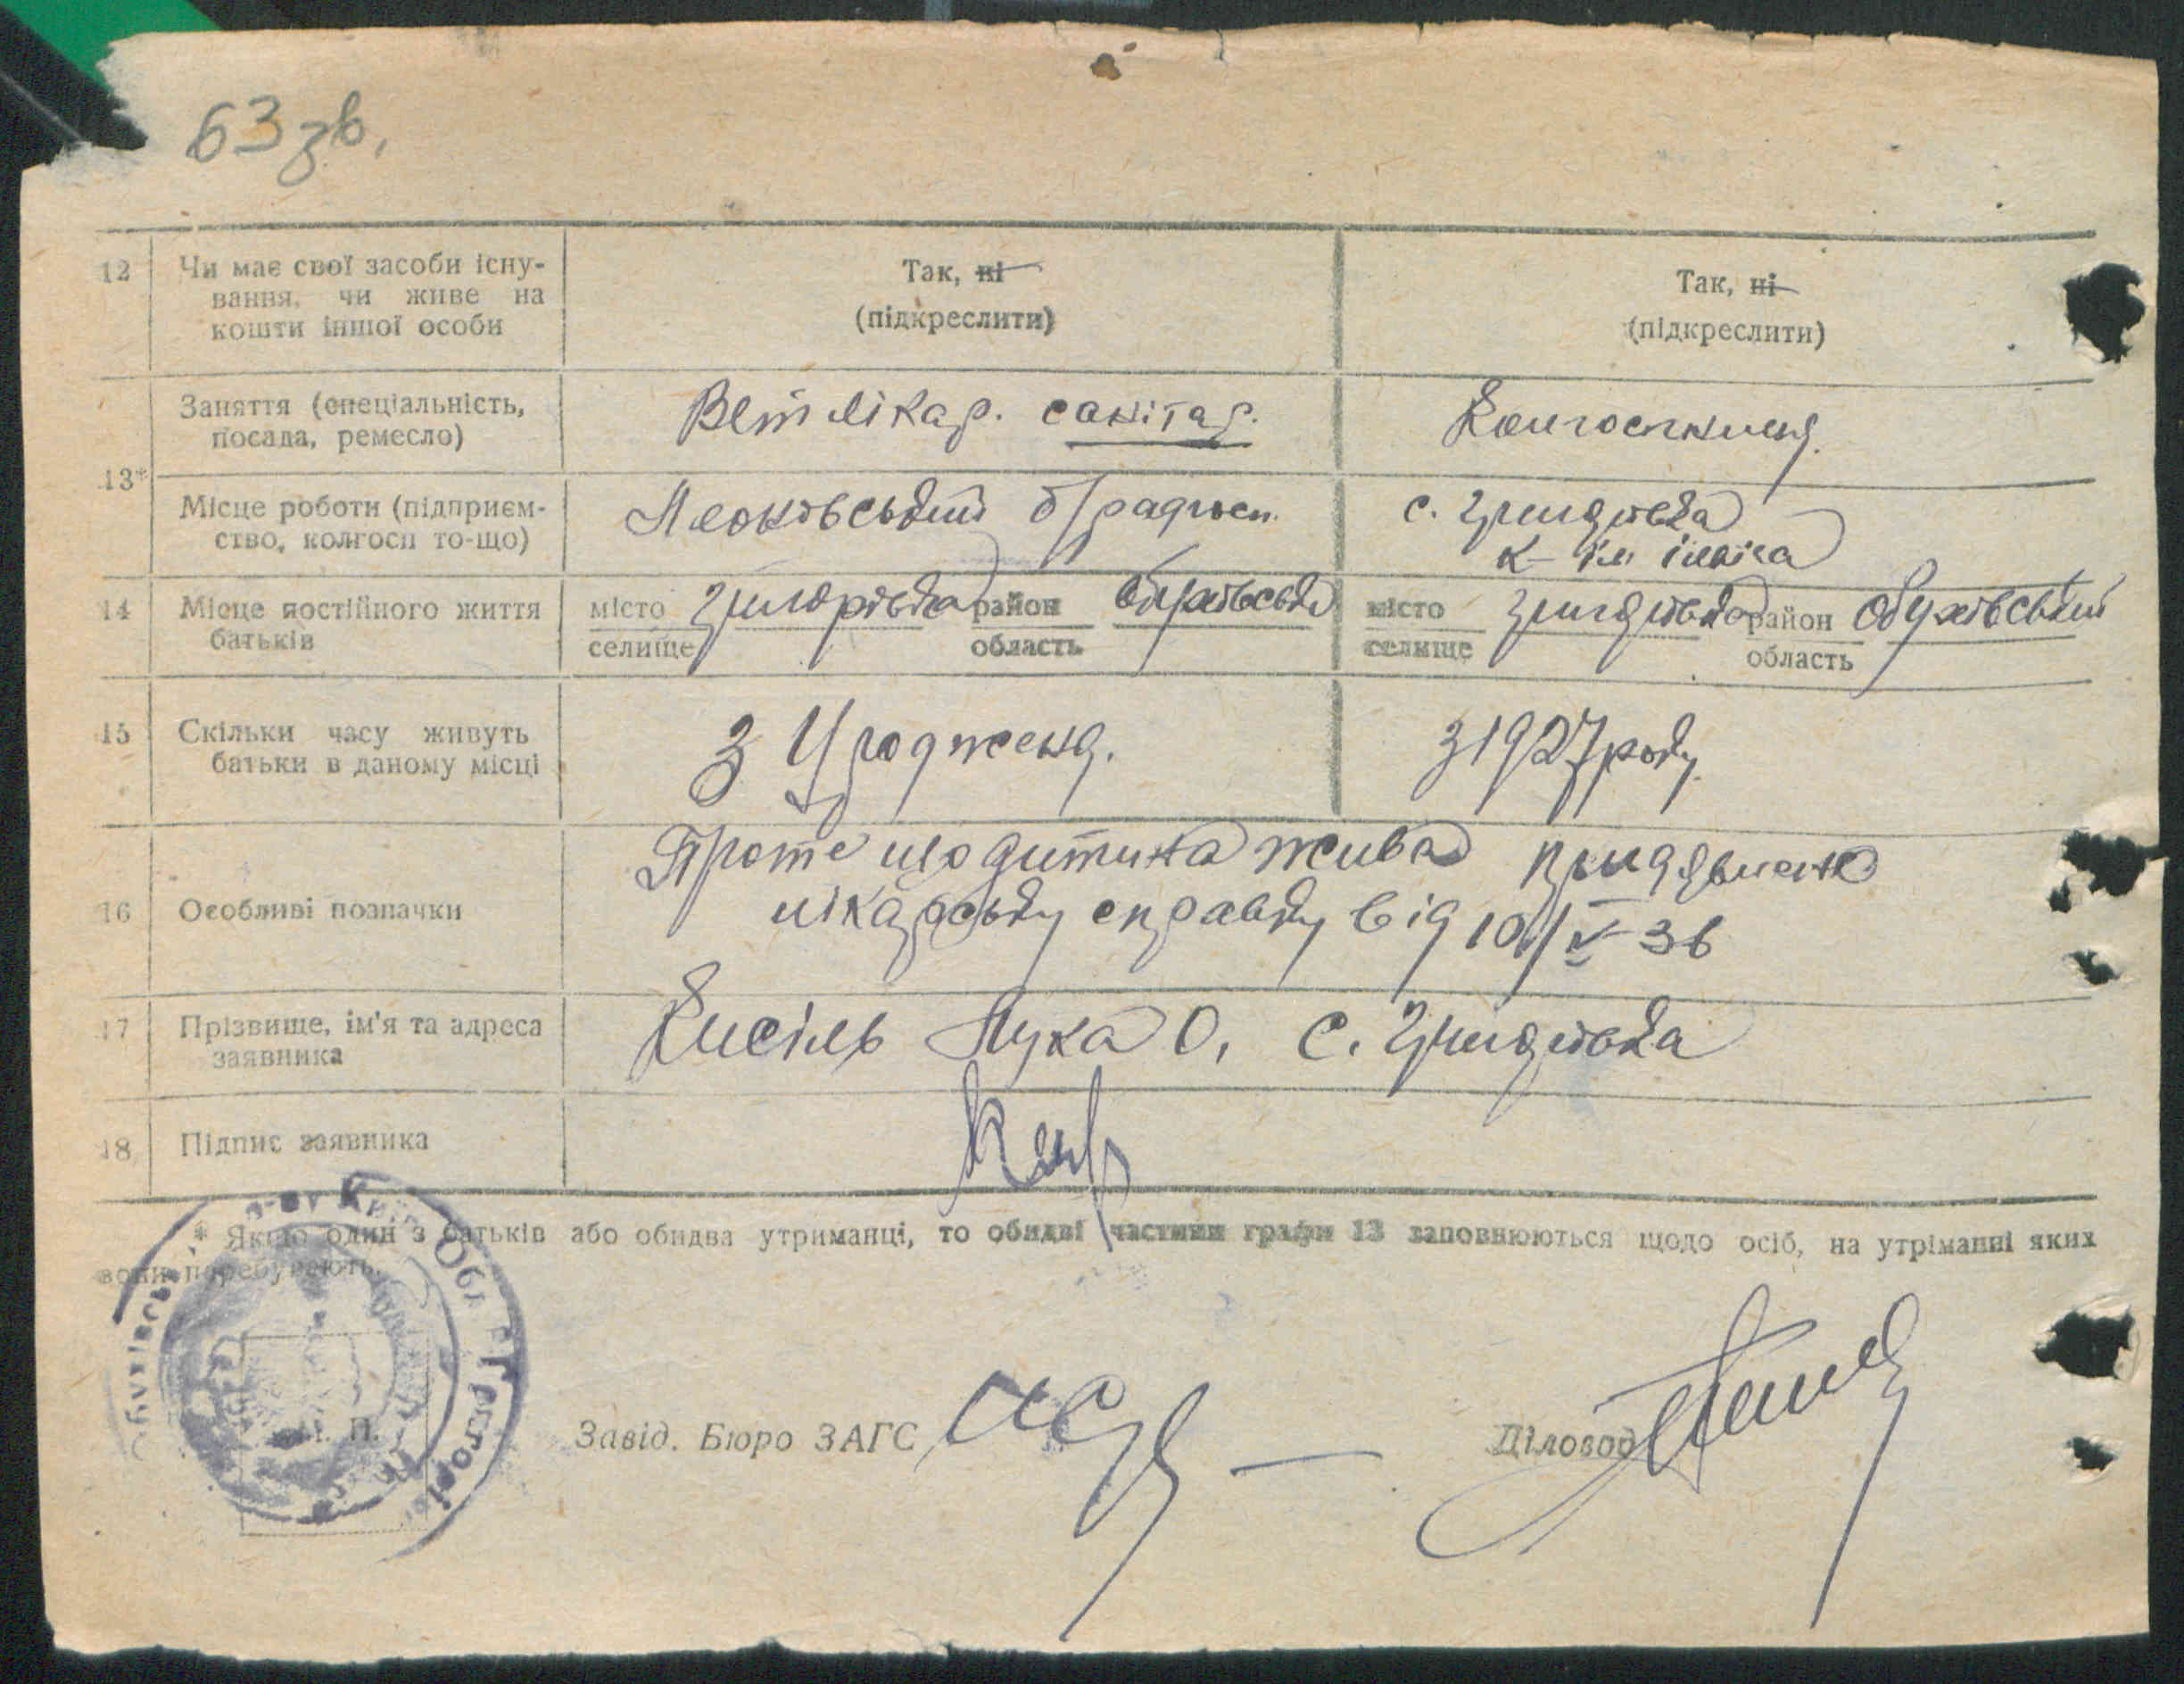 63 зв.
12 Чи має свої засоби існу-
вання, чи живе на
кошти іншої особи
Так, ні
(підкреслити)
Так, ні
(підкреслити)
13*
Заняття (спеціальність,
посада, ремесло)
Вет лікар. санітар.
Колгоспниця.
Місце роботи (підприєм-
ство, колгосп то-що)
с. Григорівка
к- ім ілліча
14 Місце постійного життя
батьків
місто Григорівка район Обухівськи
селище область
місто Григорівка район Обухівський
селище область
15 Скільки часу живуть
батьки в даному місці
З Уродженя.
з 1927 року.
16 Особливі позначки
Проте що дитина жива придявлено
лікарську справку від 10/V 36
17 Прізвище, ім'я та адреса
заявника
Кисіль Лука О, с. Григорівка
18 Підпис заявника
* Якщо один з батьків або обидва утриманці, то обидві частини графи 13 заповнюються щодо осіб, на утріманні яких
вони перебувають.
М. П.
Завід. Бюро ЗАГС
Діловод